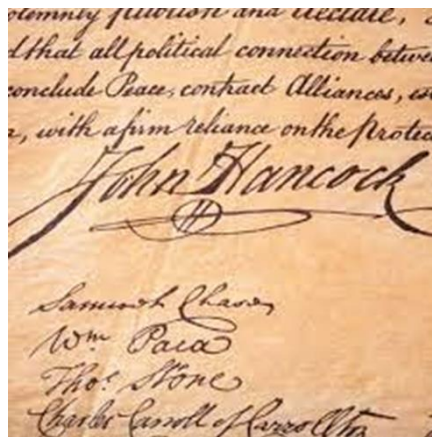 olemnly publish and declare,
d that all political connection betwee
conclude Peace, contract Alliances, es
n, with a firm reliance on the Protec
John Hancock
Samuel Chase
Wm Paca
Thos. Stone
Charles Carroll of Carrollton